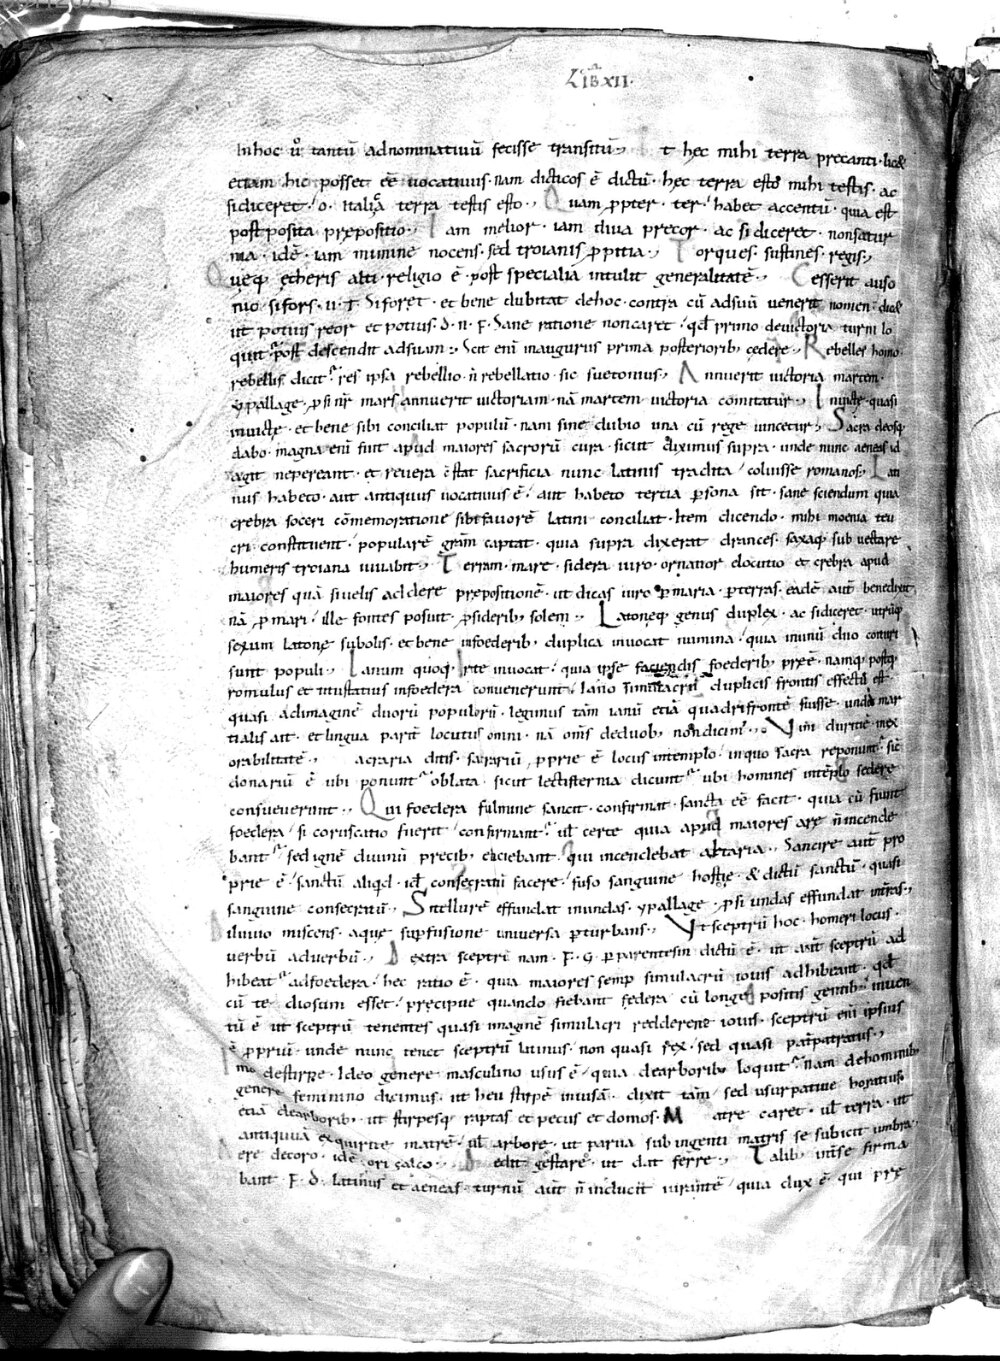 LIB XII.
In hoc u͛ tantū ad nominatiuū fecisse transitū. t hęc mihi terra precanti. licet
etiam hic posset eē uocatiuus. nam dicticos ē dictū. hęc terra esto mihi testis. ac
si diceret. o. italia terra testis esto. Quam ꝓpter. ter / habet accentū. quia est
postposita prepositio. Iam melior. iam diua precor. ac si diceret. non satur
nia. idē. iam numine nocens. sed troianis ꝓpitia. Torques. sustines. regis.
Queq; ętheris alti religio ē. post specialia intulit generalitatē. Cesserit auso
nio si fors. Si foret. et bene dubitat de hoc. contra cū ad suū uenerit nomen.
ut potius reor et potius. d. n. F. Sane ratione non caret / qd primo de uictoria turni lo
quit̃ post descendit ad suam. Scit enī in auguriis prima posteriorib; cędere. Rebelles homo
rebellis dicit̃ res ipsa rebellio. n̄ rebellatio. sic suetonius. Annuerit uictoria martem.
ypallage. ꝓ si nr̄ mars annuerit uictoriam. nā martem uictoria comitatur. Inuicte. quasi
inuicte. et bene sibi conciliat populū. nam sine dubio una cū rege uincetur. Sacra deosq;
dabo. magna enī fuit apud maiores sacrorū cura. sicut diximus supra. unde nunc aeneas id
agit ne pereant. et reuera cstat sacrificia nunc latinus tradita / coluisse romanos. Lati
nus habeto. aut antiquus uocatiuus ē / aut habeto tercia ꝑsona sit. sane sciendum quia
crebra soceri cōmemoratione sibi fauorē latini conciliat. Item dicendo. mihi moenia teu
cri constituent. popularē gram̄ captat. quia supra dixerat drances. saxaq; subuectare
humeris troiana iuuabit. Terram. mare. sidera iuro. ornatior elocutio et crebra apud
maiores quā si uelis addere prepositionē. ut dicas iuro ꝑ maria. ꝑ terras. eadē aut̄
nā ꝑ mari / ille fontes posuit. ꝑ siderib; solem. Latonęq; genus duplex. ac si diceret. utrūq;
sexum latone subolis. et bene in foederib; duplica inuocat numina / quia in unū duo
sunt populi. Ianum quoq; rite inuocat. quia ipse faciendis foederib; pręē. namq; postq;
romulus et in foedera conuenerunt. Iano simulacrū duplicis frontis effectū est
quasi ad imaginē duorū populorū. legimus tām ianū etiā quadrifrontē fuisse. unde mar
tialis ait. et lingua parit̃ locutus omni. nā om̄s de duob; non dicim͛. Vim duritiē inex
orabilitatē. acraria ditis. sacrariū ꝓprie ē locus in templo. in quo sacra reponunt̃. sic
donariū ē ubi ponunt̃ oblata. sicut lectisternia dicunt̃ ubi homines in tēplo sedere
consueuerunt. Qui foedera fulmine sancit. confirmat. sancta eē facit. quia cū fiunt
foedera / si coruscatio fuerit / confirmant̃. ul̄ certe quia apud maiores arę n̄ incende
bant̃ sed ignē diuinū precib; eliciebant. qui incendebat altaria. Sancire aut̄ pro
prie ē / sanctū aliqd. id. consecratū facere. fuso sanguine hostię. & dictū sanctū. quasi
sanguine consecratū. Si tellurē effundat in undas. ypallage. ꝓ si undas effundat in tr̄as.
Diluuio miscens. aquę supfusione uniuersa ꝑturbans. Vt sceptrū hoc. homeri locus.
uerbū ad uerbū. Dextra sceptrū nam. F. G. ꝑ parentesin dictū ē. ut aut̄ sceptrū ad
hibeat̃ ad foedera / hęc ratio ē. quia maiores semp̄ simulacrū iouis adhibeant. qd
cū tediosum esset. precipue quando fiebant fędera cū longe positis gentib; inuen
tū ē ut sceptrū tenentes quasi imaginē simulacri redderent iouis. sceptrū enī ipsius
ē ꝓpriū. unde nunc tenet sceptrū latinus. non quasi rex. sed quasi pat̃patratus.
Imo de stirpe. Ideo genere masculino usus ē / quia de arborib; loquit̃. nam de hominib;
genere feminino dicimus. ut heu stirpē inuisā. dixit tām / sed usurpatiue horatius
etiā de arborib; ut stirpesq; raptas et pecus et domos. Matre caret. ul̄ terra. ut
antiquā exquirite matrē / ul̄ arbore. ut parua sub ingenti matris se subicit umbra.
ere decoro. idē. ori calco. Dedit gestare. ut dat ferre. Talib; int̃ se firma
bant. F. D. latinus et aeneas. turnū aut̄ n̄ inducit iurantē / quia dux ē. qui prę